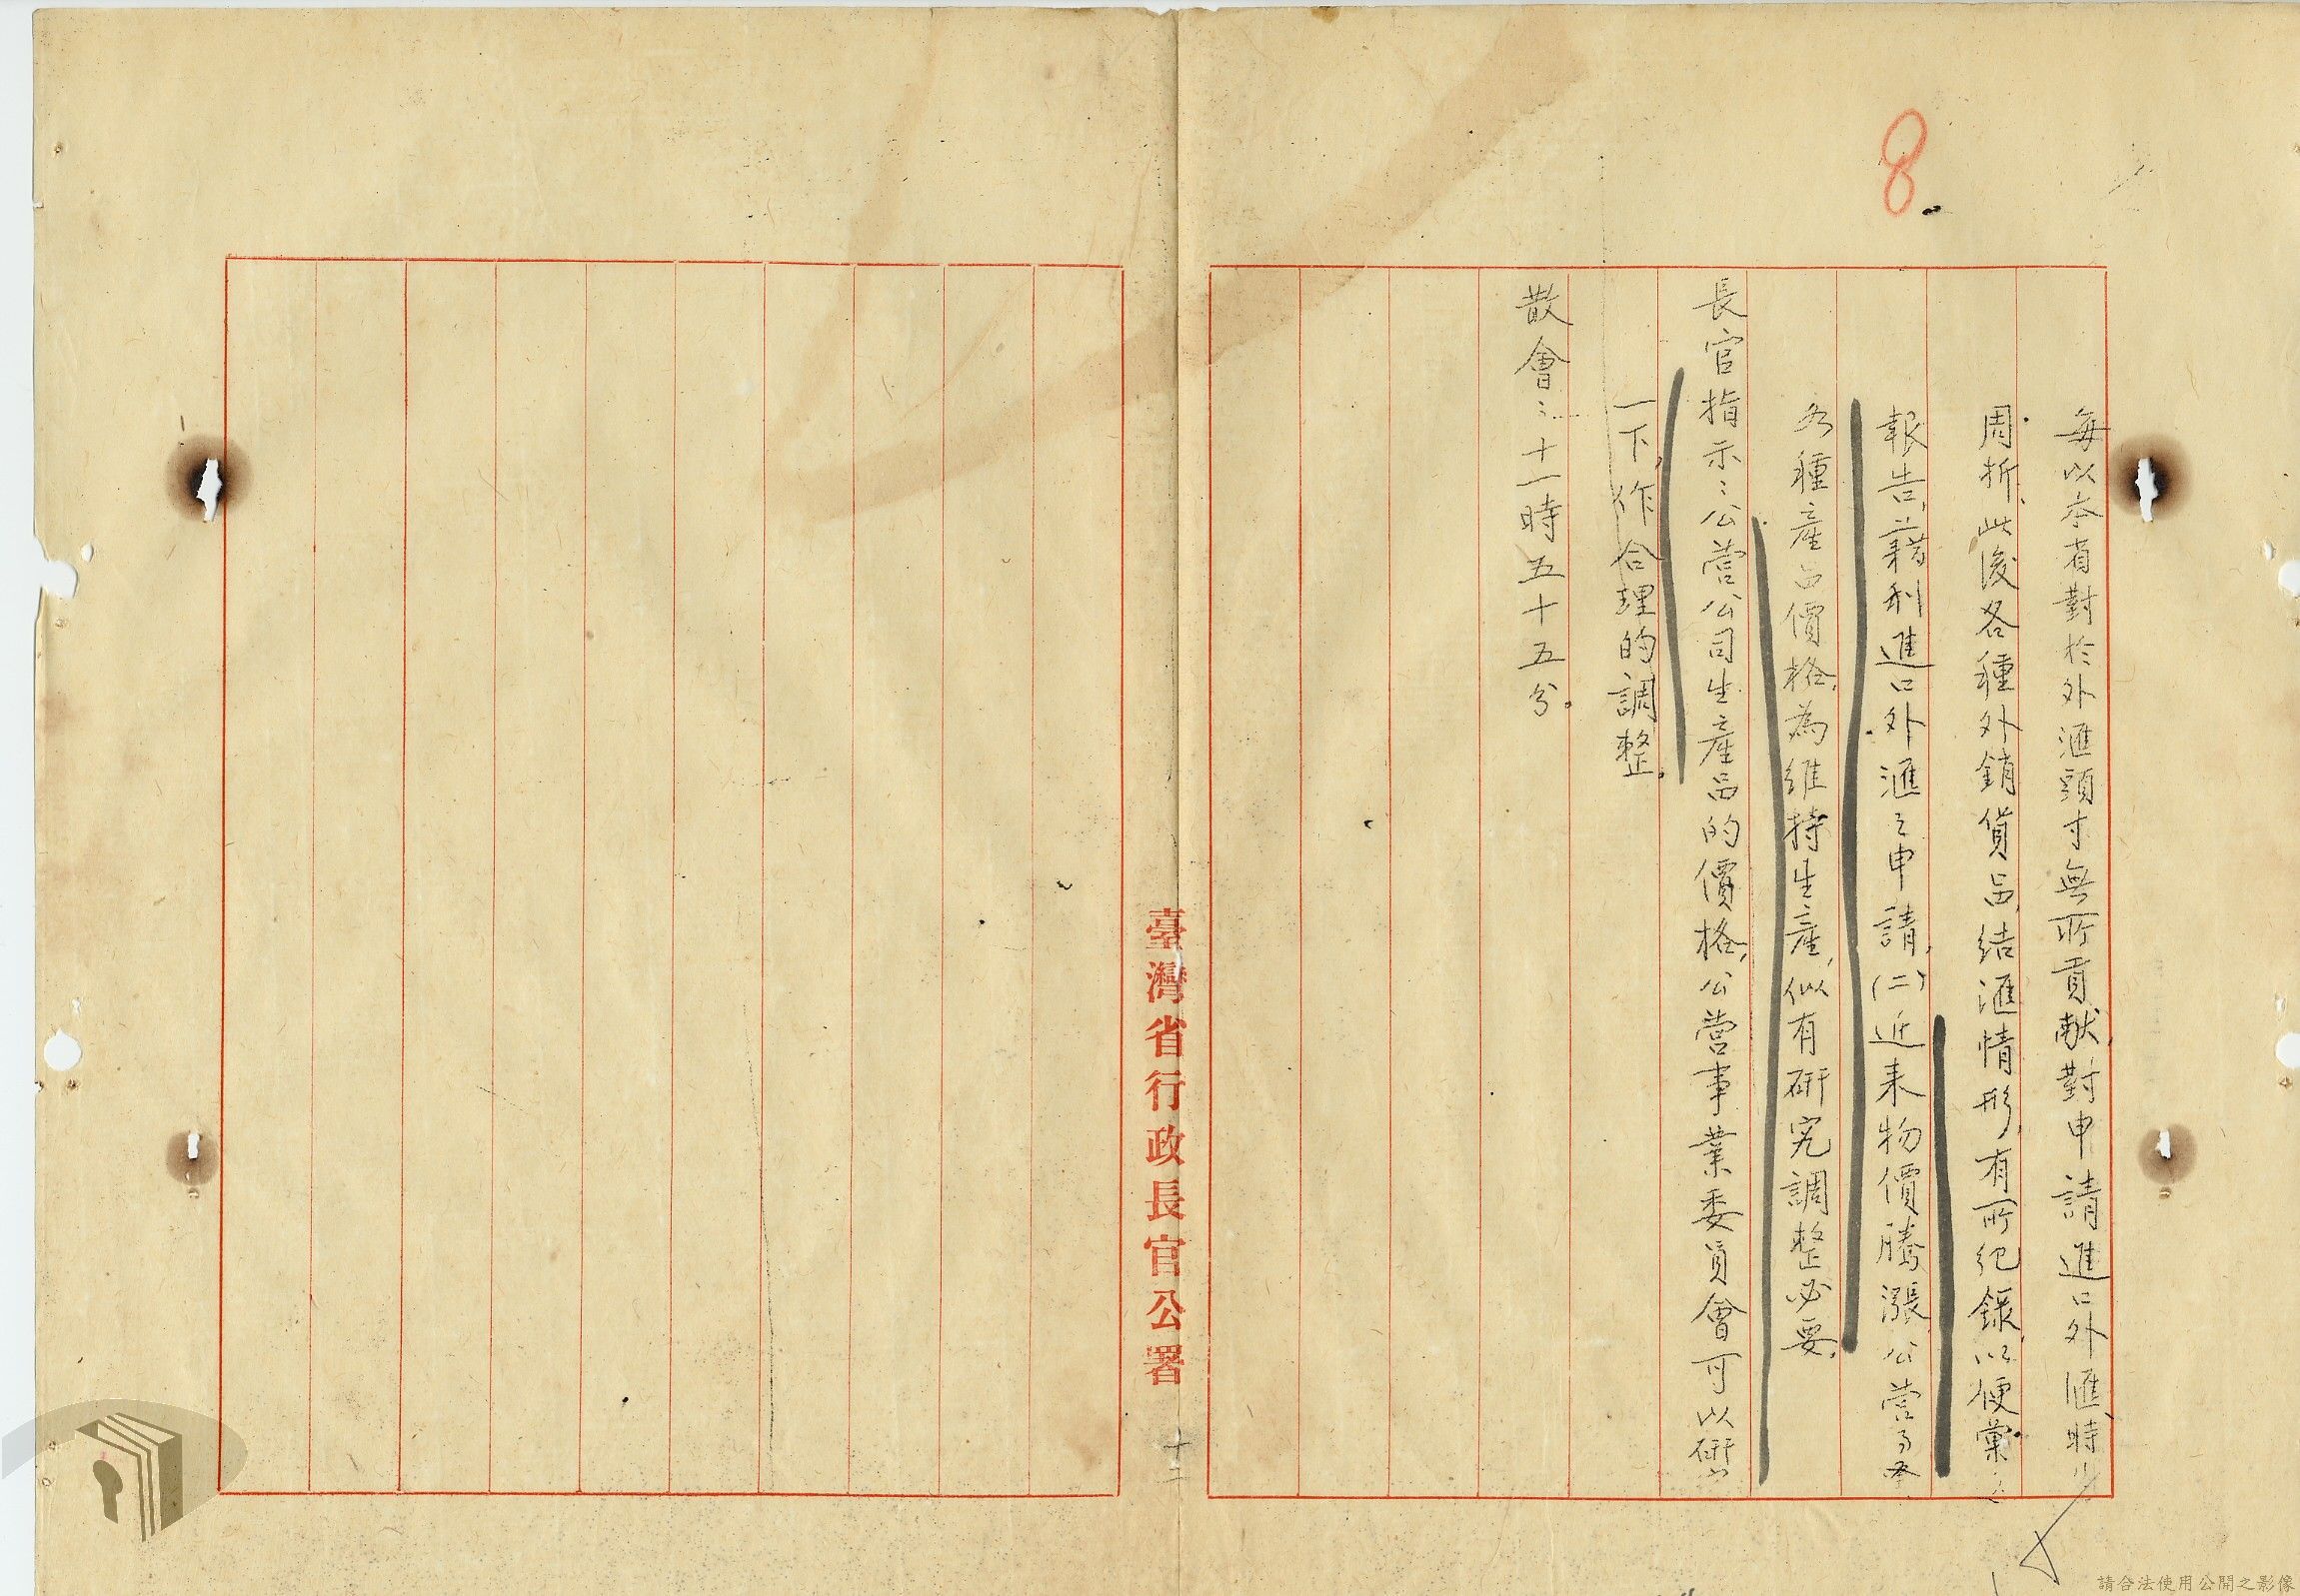 8
每以本省對於外滙頭寸無所貢献,對申請進口外滙、時
周折、此後各種外銷貨品,結滙情形,有所紀錄,以便彙
報告,藉利進口外滙之申請,(二)近来物價騰漲公营
各種產品價格,為維持生產,似有研究調整必要,
長官指示:公营公司生產品的價格,公营事業委員會可以研究
一下,作合理的調整。
散會:十一時五十五分。
臺灣省行政長官公署
十二
請合法使用公開之影像